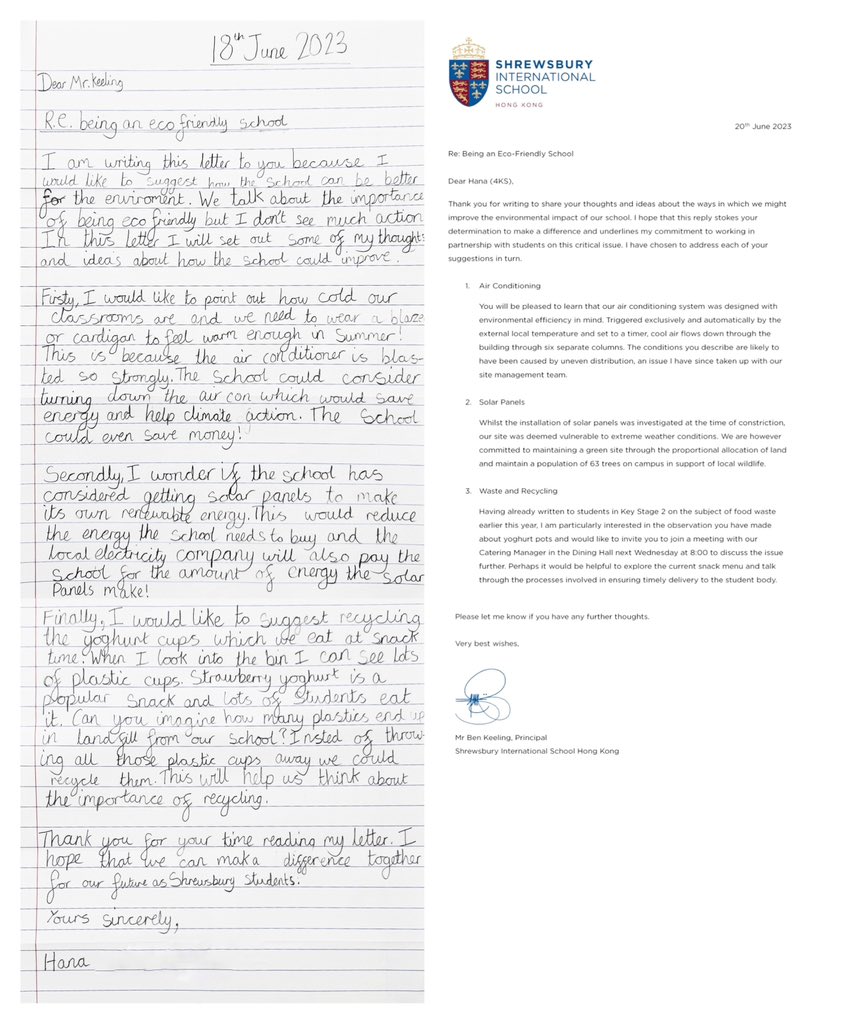 18th June 2023
Dear Mr. Keeling
R.E. being an eco friendly school
I am writing this letter to you because I
would like to suggest how the school can be better
for the enviroment. We talk about the importance
of being eco friendly but I don't see much action
In this letter I will set out some of my thoughts
and idea's about how the school could improve.
Firsty, I would like to point out how cold our
classrooms are and we need to wear a blaze
or cardigan to feel warm enough in Summer!
This is because the air conditioner is blas-
ted so strongly. The school could consider
turning down the air con which would save
energy and help climate action. The School
could even save money!
Secondly, I wonder if the school has
considered getting solar panels to make
its own renewable energy. This would reduce
the energy the school needs to buy and the
local electricity company will also pay the
school for the amount of energy the solar
Panels make!
Finally, I would like to suggest recycling
the yoghurt cups which we eat at snack
time. When I look into the bin I can see lots
of plastic cups. Strawberry yoghurt is a
popular snack and lots of students eat
it. Can you imagine how many plastics end up
in landfill from our school? Insted of throw-
ing all those plastic cups away we could
recycle them. This will help us think about
the importance of recycling.
Thank you for your time reading my letter. I
hope that we can make a difference together
for our future as Shrewsbury students.
Yours sincerely,
Hana
SHREWSBURY
INTERNATIONAL
SCHOOL
HONG KONG
20th June 2023
Re: Being an Eco-Friendly School
Dear Hana (4KS),
Thank you for writing to share your thoughts and ideas about the ways in which we might
improve the environmental impact of our school. I hope that this reply stokes your
determination to make a difference and underlines my commitment to working in
partnership with students on this critical issue. I have chosen to address each of your
suggestions in turn.
1. Air Conditioning
You will be pleased to learn that our air conditioning system was designed with
environmental efficiency in mind. Triggered exclusively and automatically by the
external local temperature and set to a timer, cool air flows down through the
building through six separate columns. The conditions you describe are likely to
have been caused by uneven distribution, an issue I have since taken up with our
site management team.
2. Solar Panels
Whilst the installation of solar panels was investigated at the time of constriction,
our site was deemed vulnerable to extreme weather conditions. We are however
committed to maintaining a green site through the proportional allocation of land
and maintain a population of 63 trees on campus in support of local wildlife.
3. Waste and Recycling
Having already written to students in Key Stage 2 on the subject of food waste
earlier this year, I am particularly interested in the observation you have made
about yoghurt pots and would like to invite you to join a meeting with our
Catering Manager in the Dining Hall next Wednesday at 8:00 to discuss the issue
further. Perhaps it would be helpful to explore the current snack menu and talk
through the processes involved in ensuring timely delivery to the student body.
Please let me know if you have any further thoughts.
Very best wishes,
Mr Ben Keeling, Principal
Shrewsbury International School Hong Kong